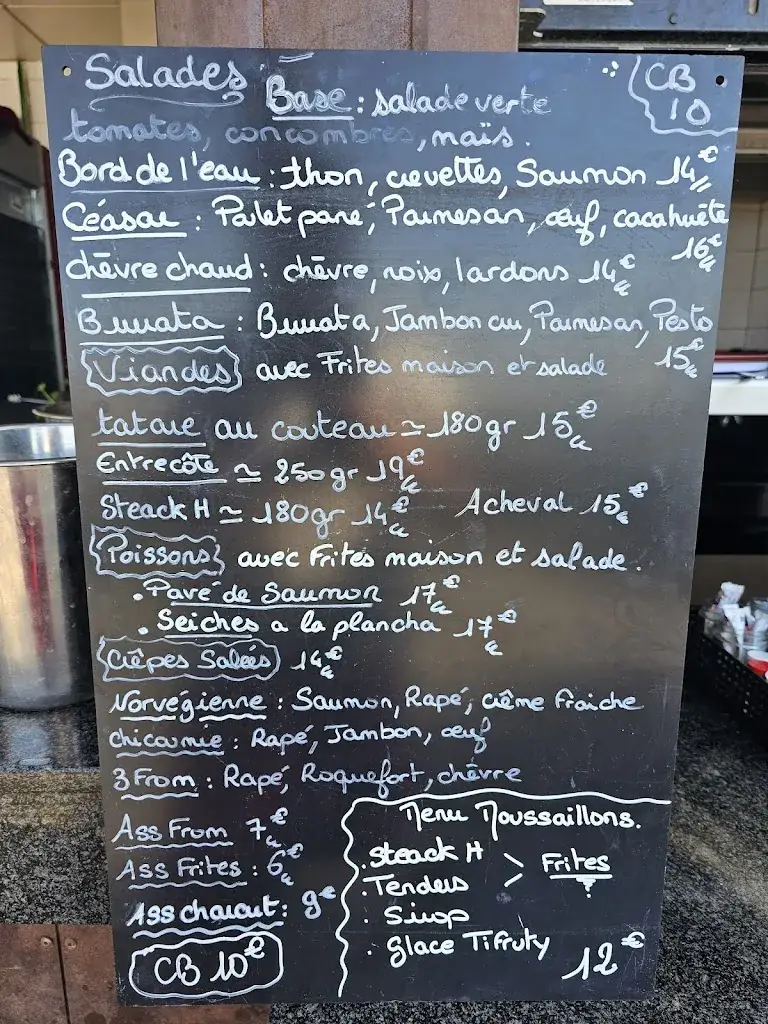 Salades Base : salade verte CB 10
tomates, concombres, maïs.
Bord de l'eau : thon, crevettes, Saumon 14€
Céasar : Palet pané, Parmesan, œuf, cacahuête
16€
chèvre chaud : chèvre, noix, lardons 14€
Burrata : Burrata, Jambon cru, Parmesan, Pesto
Viandes avec Frites maison et salade 15€
tatare au couteau ≃ 180gr 15€
Entrecôte ≃ 250gr 19€
Steack H ≃ 180gr 14€ Acheval 15€
Poissons avec Frites maison et salade.
. Pavé de Saumon 17€
. Seiches a la plancha 17€
Crêpes Salées 14€
Norvégienne : Saumon, Rapé, crême fraiche
chicournie : Rapé, Jambon, œuf
3 From : Rapé, Roquefort, chèvre
Ass From 7€
Ass Frites : 6€
Ass charcut : 9€
CB 10€
Menu Moussaillons.
. Steack H > Frites
. Tenders
. Sirop
. glace Tifruty
12€